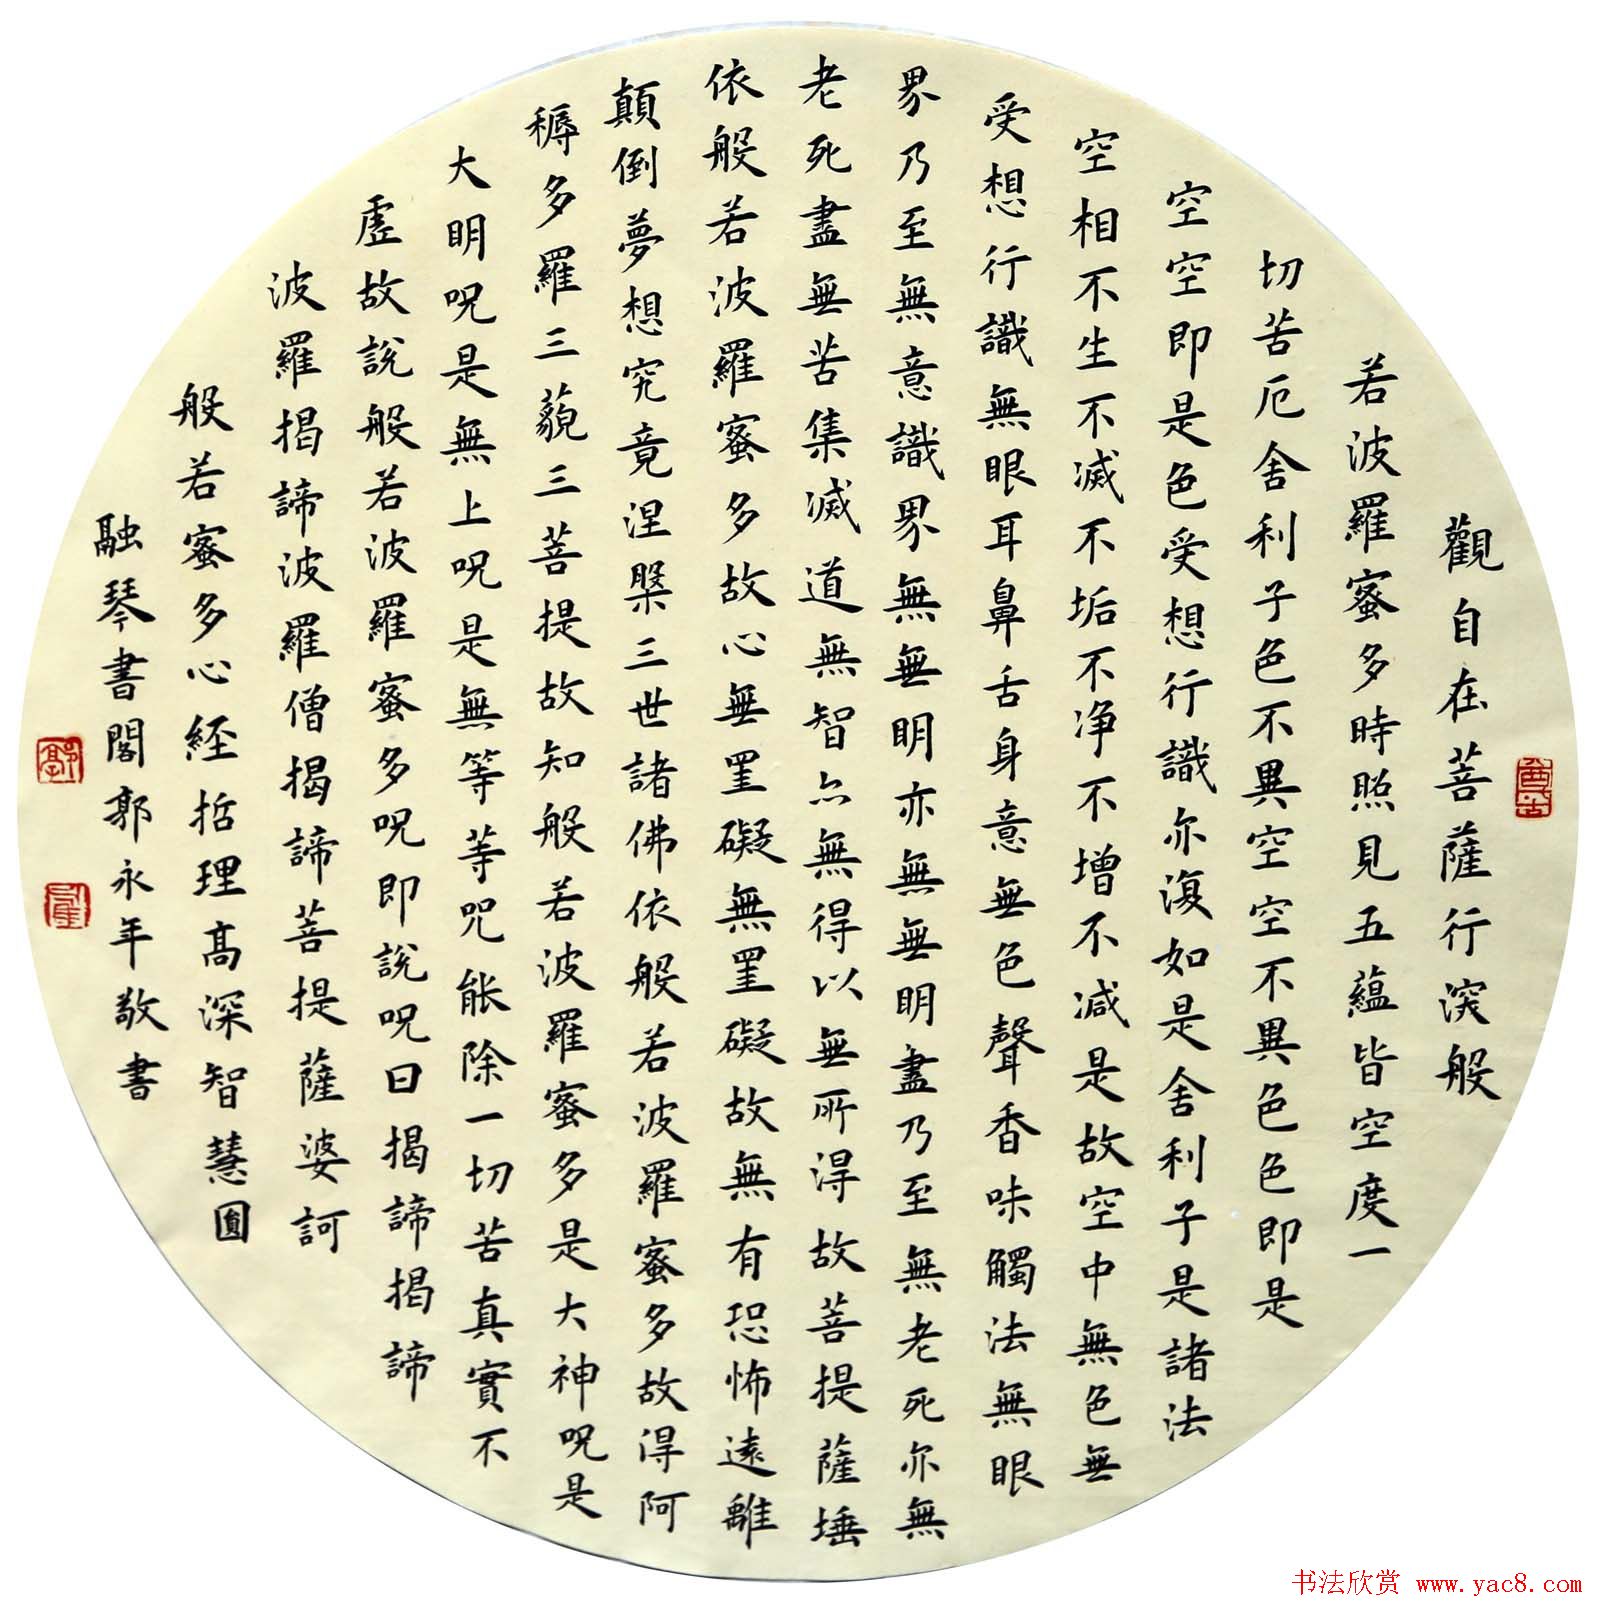 觀自在菩薩行深般
若波羅蜜多時照見五蘊皆空度一
切苦厄舍利子色不異空空不異色色即是
空空即是色受想行識亦復如是舍利子是諸法
空相不生不滅不垢不净不增不減是故空中無色無
受想行識無眼耳鼻舌身意無色聲香味觸法無眼
界乃至無意識界無無明亦無無明盡乃至無老死亦無
老死盡無苦集滅道無智亦無得以無所得故菩提薩埵
依般若波羅蜜多故心無罣礙無罣礙故無有恐怖遠離
顛倒夢想究竟涅槃三世諸佛依般若波羅蜜多故得阿
耨多羅三藐三菩提故知般若波羅蜜多是大神呪是
大明呪是無上呪是無等等呪能除一切苦真實不
虛故說般若波羅蜜多呪即說呪曰揭諦揭諦
波羅揭諦波羅僧揭諦菩提薩婆訶
般若蜜多心經哲理高深智慧圓
融琴書閣郭永年敬書
书法欣赏 www.yac8.com